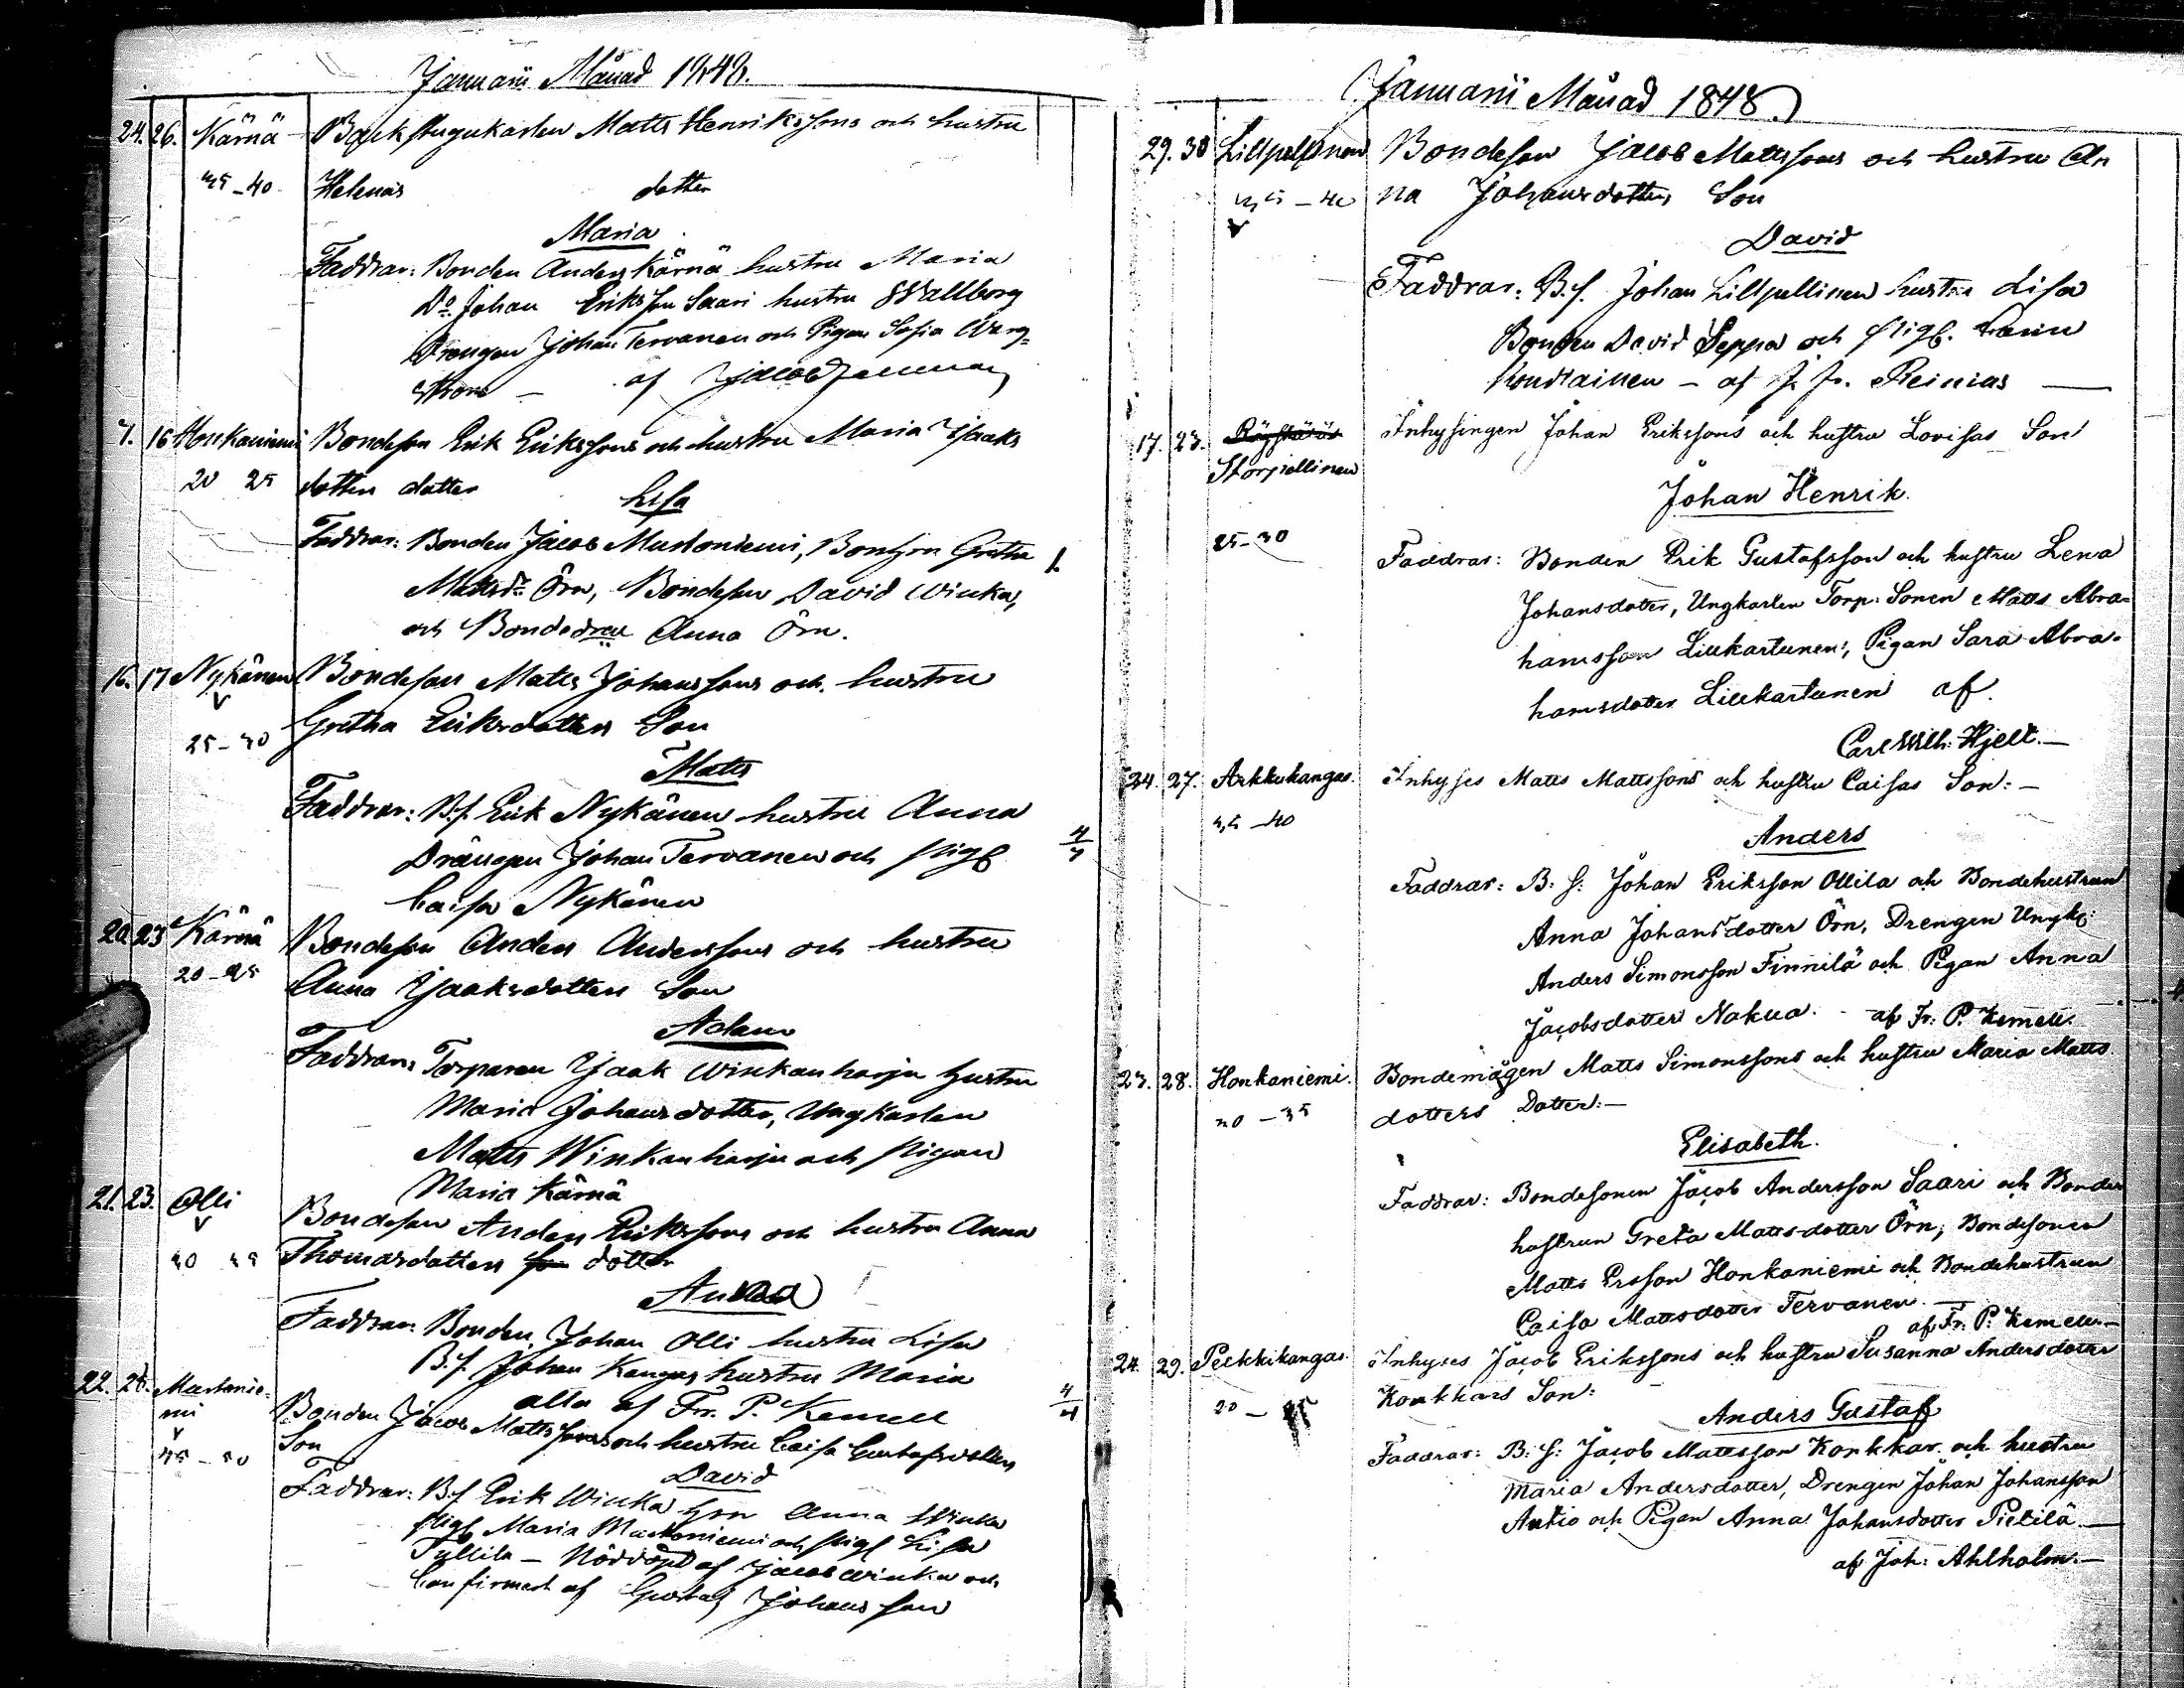 Januarii Månad 1848.
24. 26. Kärnä Backstugukarlen Matts Henrikssons och hustru
35-40 Helenas dotter
Maria
Faddrar: Bonden Anders Kärnä hustru Maria
Do Johan Eriksson Saari hustru Wallborg
Drängen Johan Tervanen och Pigan Sofia Wäng=
ström – af Jacob
7. 16 Honkaniemi Bondeson Erik Erikssons och hustru Maria Isaaks
20 25 dotters dotter
Lisa
Faddrar: Bonden Jacob Mustoniemi, Bonhrn Gretha
Mattsdr Örn, Bondeson David Winka,
och Bondedren Anna Örn.
16. 17 Nykänen Bondeson Matts Johanssons och hustru
25-30 Gretha Eriksdotters Son
Matts
Faddrar: B.s. Erik Nykänen hustru Anna
Drängen Johan Tervanen och pigb
Caisa Nykänen
4/4
20 23 Kärnä Bondeson Anders Anderssons och hustru
20-25 Anna Isaaksdotters Son
Adam
Faddrar: Torparen Isaak Winkanharju hustru
Maria Johansdotter, Ungkarlen
Matts Winkanharju och Pigan
Maria Kärnä
21. 23. Olli Bondeson Anders Erikssons och hustru Anna
30 35 Thomasdotters son dotter
Anna
Faddrar: Bonden Johan Olli hustru Lisa
B.s. Johan Kangas hustru Maria
alla af Fr. P. Kemell
4/4
22. 26. Mustonie-
mi Bonden Jacob Mattssons och hustru Caisa Gustafsdotters
45-50 Son
David
Faddrar: B.s Erik Winka hrn Anna Winka
pigb Maria Mustoniemi och pigb Lisa
Tyllilä – Nöddöpt af Jacob Winka och
Confirmerat af Gustaf Johansson
Januarii Månad 1848.
29. 30 Lillpellinen Bondeson Jacob Mattssons och hustru An
35-40 na Johansdotters Son
David
Faddrar: B.s. Johan Lillpellinen hustru Lisa
Bonden David Seppä och pigb. Karin
Hondlainen – af J. Fr. Reinius
17. 23. Storpellinen Inhysingen Johan Erikssons och hustru Lovisas Son
Johan Henrik.
25-30
Faddrar: Bonden Erik Gustafsson och hustru Lena
Johansdotter, Ungkarlen Torp. Sonen Matts Abra=
hamsson Liukartunen, Pigan Sara Abra-
hamsdotter Liukartunen af
Carl Wilh: Hjelt.—
24. 27. Arkkukangas. Inhyses Matts Mattssons och hustru Caisas Son:—
35-40
Anders
Faddrar: B: S: Johan Eriksson Ollila och Bondehustrun
Anna Johansdotter Örn, Drengen Ungk:
Anders Simonsson Finnilä och Pigan Anna
Jacobsdotter Nakua. - af Fr: P. Kemell.
23. 28. Honkaniemi. Bondemågen Matts Simonssons och hustru Maria Matts
30-35 dotters Dotter:—
Elisabeth.
Faddrar: Bondesonen Jacob Andersson Saari och Bonde
hustrun Greta Mattsdotter Örn, Bondesonen
Matts Ersson Honkaniemi och Bondehustrun
Caisa Mattsdotter Tervanen.—
af Fr: P. Kemell—
24. 29. Peckkikangas. Inhyses Jacob Erikssons och hustru Susanna Andersdotter
20-25 Konkkars Son:
Anders Gustaf
Faddrar: B: S: Jacob Mattsson Konkkar och hustru
Maria Andersdotter, Drengen Johan Johansson
Autio och Pigan Anna Johansdotter Pietilä—
af Joh: Ahlholm—